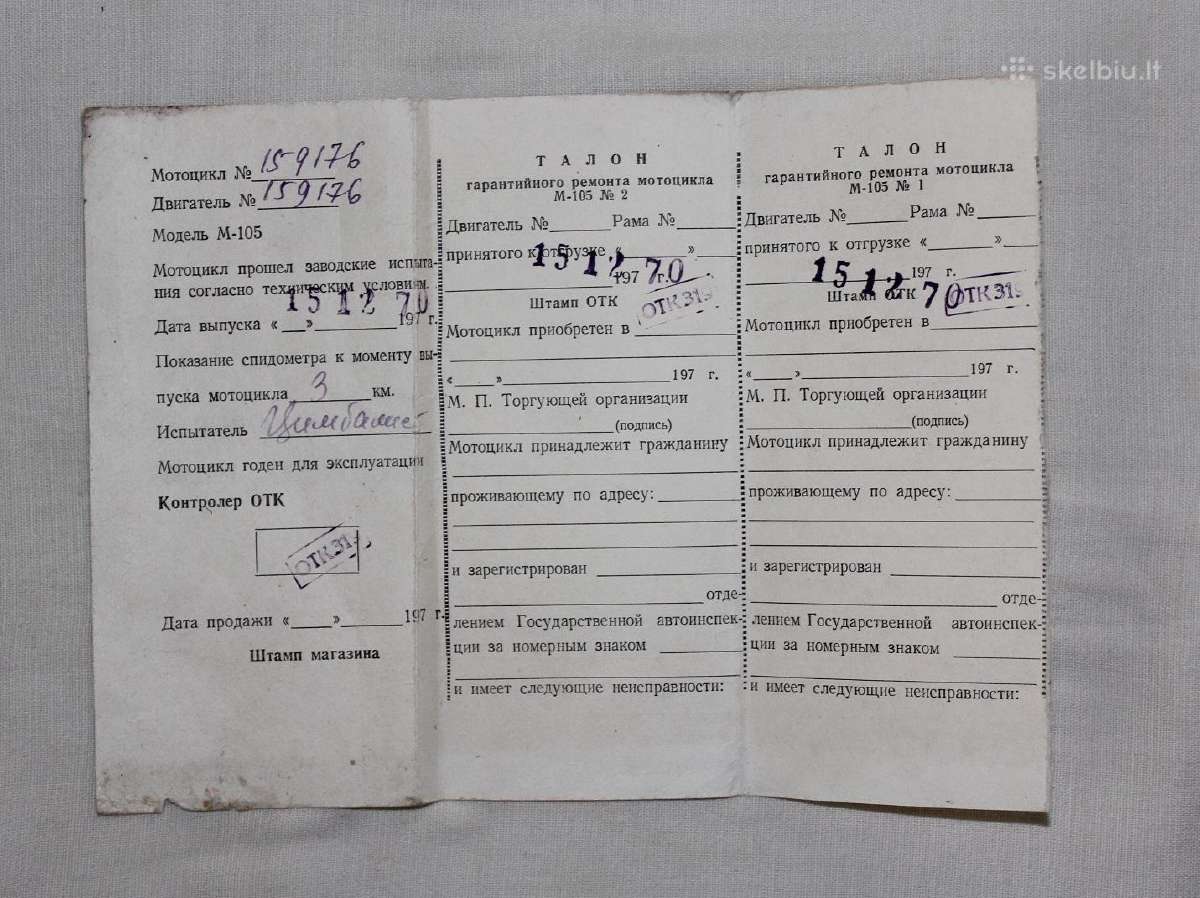 skelbiu.lt
Мотоцикл № 159176
Двигатель № 159176
Модель М-105
Мотоцикл прошел заводские испыта-
ния согласно техническим условиям.
15 12 70
Дата выпуска «__»________197 г.
Показание спидометра к моменту вы-
пуска мотоцикла 3 км.
Испытатель
Мотоцикл годен для эксплуатации
Контролер ОТК
ОТК 31
Дата продажи «____»______197 г.
Штамп магазина
ТАЛОН
гарантийного ремонта мотоцикла
М-105 № 2
Двигатель №______ Рама №______
принятого к отгрузке «______»___
15 12 70
197 г.
Штамп ОТК
ОТК 31
Мотоцикл приобретен в
«____»________________197 г.
М. П. Торгующей организации
(подпись)
Мотоцикл принадлежит гражданину
проживающему по адресу:
и зарегистрирован
отде-
лением Государственной автоинспек-
ции за номерным знаком
и имеет следующие неисправности:
ТАЛОН
гарантийного ремонта мотоцикла
М-105 № 1
Двигатель №______ Рама №______
принятого к отгрузке «______»___
15 12 70
197 г.
Штамп ОТК
ОТК 31
Мотоцикл приобретен в
«____»________________197 г.
М. П. Торгующей организации
(подпись)
Мотоцикл принадлежит гражданину
проживающему по адресу:
и зарегистрирован
отде-
лением Государственной автоинспек-
ции за номерным знаком
и имеет следующие неисправности: